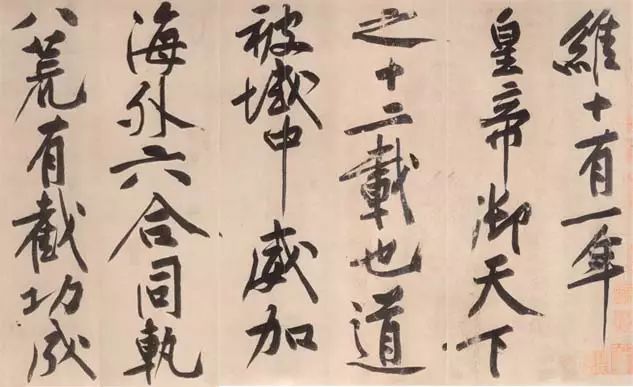 維十有一年
皇帝御天下
之十二載也道
被域中威加
海外六合同軌
八荒有截功成